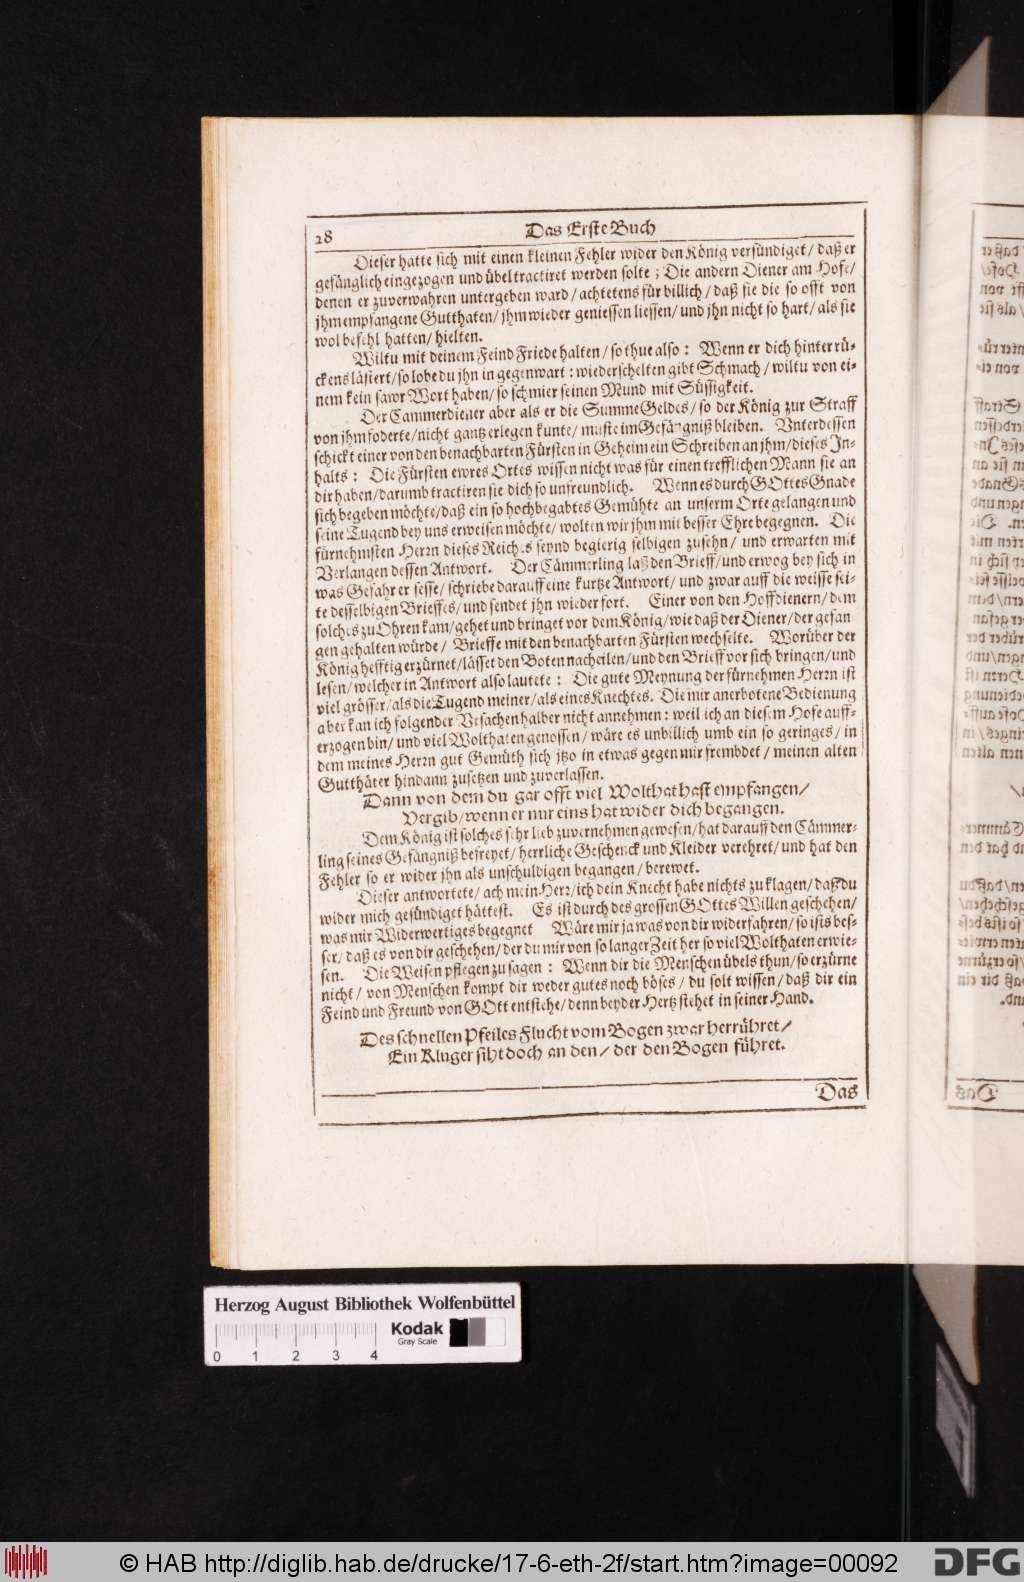 28
Das Erste Buch
Dieser hatte sich mit einen kleinen Fehler wider den König versündiget/ daß er
gefänglich eingezogen und übel tractiret werden solte; Die andern Diener am Hofe/
denen er zuverwahren untergeben ward/ achtetens für billich/ daß sie die so offt von
jhm empfangene Gutthaten/ jhm wieder geniessen liessen/ und jhn nicht so hart/ als sie
wol befehl hatten/ hielten.
Wiltu mit deinem Feind Friede halten/ so thue also: Wenn er dich hinter rü-
ckens läsiert/ so lobe du jhn in gegenwart: wiederschelten gibt Schmach/ wiltu von ei-
nem kein sawr Wort haben/ so schmier seinen Mund mit Süssigkeit.
Der Cammerdiener aber als er die Summe Geldes/ so der König zur Straff
von jhm foderte/ nicht gantz erlegen kunte/ muste im Gefängniß bleiben. Unterdessen
schickt einer von den benachbarten Fürsten in Geheim ein Schreiben an jhm/ dieses In-
halts: Die Fürsten ewres Ortes wissen nicht was für einen trefflichen Mann sie an
dir haben/ darumb tractiren sie dich so unfreundlich. Wenn es durch GOttes Gnade
sich begeben möchte/ daß ein so hochbegabtes Gemühte an unserm Orte gelangen und
seine Tugend bey uns erweisen möchte/ wolten wir jhm mit besser Ehre begegnen. Die
fürnehmsten Herrn dieses Reichs seynd begierig selbigen zusehn/ und erwarten mit
Verlangen dessen Antwort. Der Cämmerling laß den Brieff/ und erwog bey sich in
was Gefahr er sesse/ schriebe darauff eine kurtze Antwort/ und zwar auff die weisse sei-
te desselbigen Brieffes/ und sendet jhn wieder fort. Einer von den Hoffdienern/ dem
solches zu Ohren kam/ gehet und bringet vor dem König/ wie daß der Diener/ der gefan
gen gehalten würde/ Brieffe mit den benachbarten Fürsten wechselte. Worüber der
König hefftig erzürnet/ lässet den Boten nacheilen/ und den Brieff vor sich bringen/ und
lesen/ welcher in Antwort also lautete: Die gute Meynung der fürnehmen Herrn ist
viel grösser/ als die Tugend meiner/ als eines Knechtes. Die mir anerbotene Bedienung
aber kan ich folgender Vrsachen halber nicht annehmen: weil ich an diesem Hofe auff-
erzogen bin/ und viel Wolthaten genossen/ wäre es unbillich umb ein so geringes/ in
dem meines Herrn gut Gemüth sich jtzo in etwas gegen mir frembdet/ meinen alten
Gutthäter hindann zusetzen und zuverlassen.
Dann von dem du gar offt viel Wolthat hast empfangen/
Vergib/ wenn er nur eins hat wider dich begangen.
Dem König ist solches sehr lieb zuvernehmen gewesen/ hat darauff den Cämmer-
ling seines Gefängniß befreyet/ herrliche Geschenck und Kleider verehret/ und hat den
Fehler so er wider jhn als unschuldigen begangen/ berewet.
Dieser antwortete/ ach mein Herr/ ich dein Knecht habe nichts zu klagen/ daß du
wider mich gesündiget hättest. Es ist durch des grossen GOttes Willen geschehen/
was mir Widerwertiges begegnet Wäre mir ja was von dir widerfahren/ so ists bes-
ser/ daß es von dir geschehen/ der du mir von so langer Zeit her so viel Wolthaten erwie-
sen. Die Weisen pflegen zu sagen: Wenn dir die Menschen übels thun/ so erzürne
nicht/ von Menschen kompt dir weder gutes noch böses/ du solt wissen/ daß dir ein
Feind und Freund von GOtt entstehe/ denn beyder Hertz stehet in seiner Hand.
Des schnellen Pfeiles Flucht vom Bogen zwar herrühret/
Ein Kluger siht doch an den/ der den Bogen führet.
Das
Herzog August Bibliothek Wolfenbüttel
Kodak
Gray Scale
0 1 2 3 4
© HAB http://diglib.hab.de/drucke/17-6-eth-2f/start.htm?image=00092
DFG